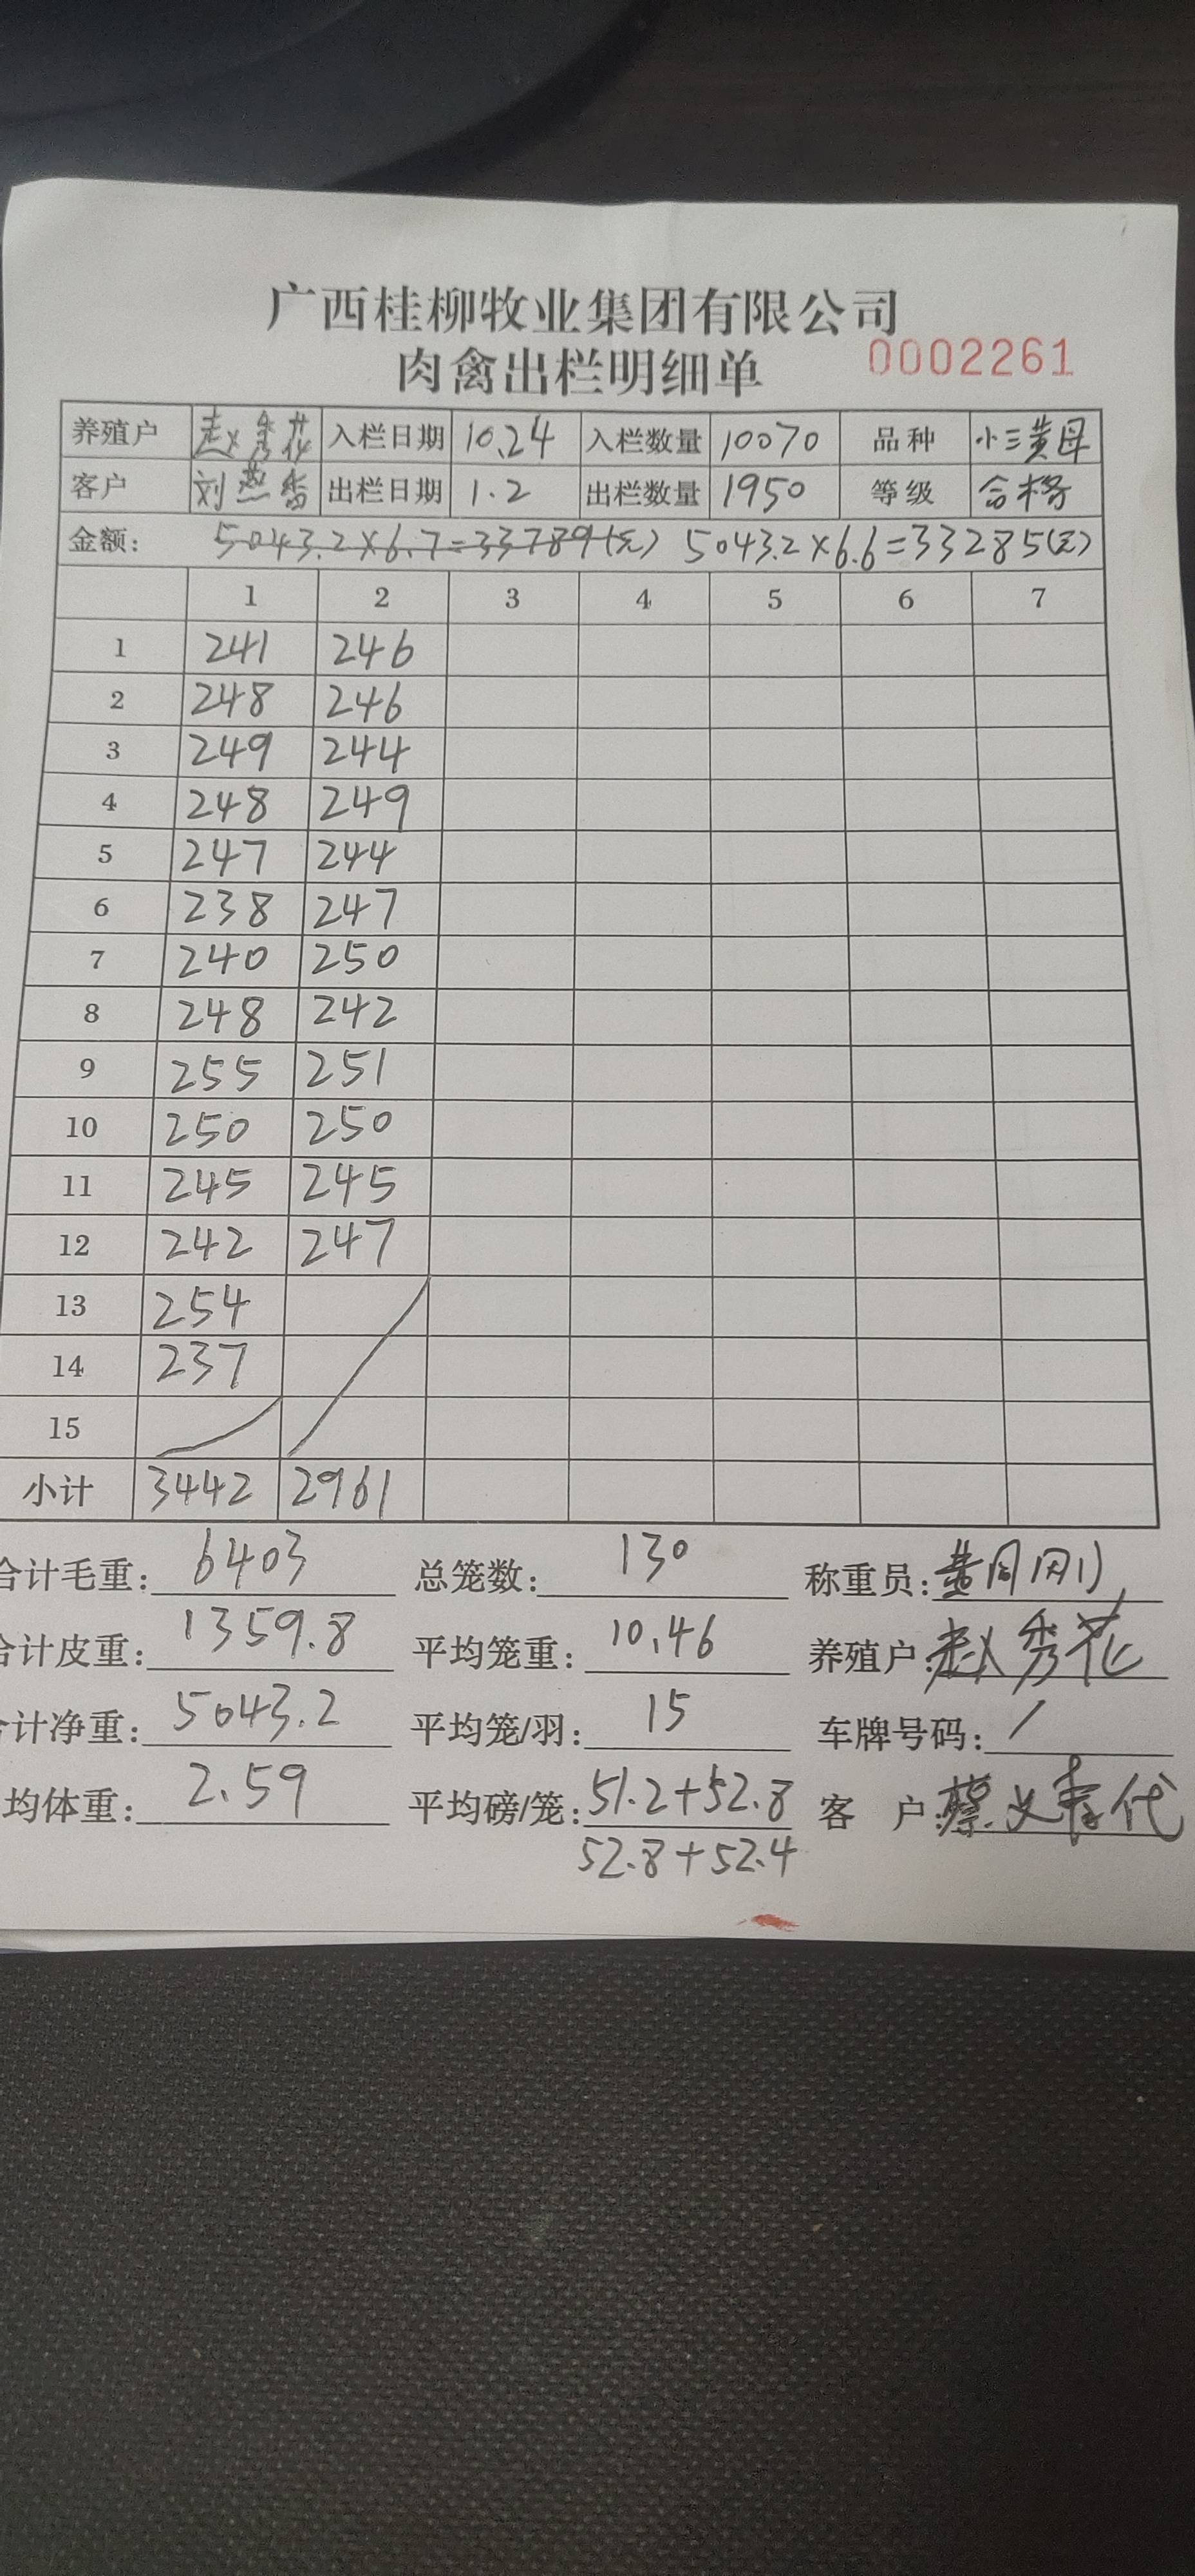 广西桂柳牧业集团有限公司
肉禽出栏明细单 0002261
养殖户 赵秀花 入栏日期 10.24 入栏数量 10070 品种 小三黄母
客户 刘燕香 出栏日期 1.2 出栏数量 1950 等级 合格
金额: 5043.2×6.7=33789(元) 5043.2×6.6=33285(元)
1 2 3 4 5 6 7
1 241 246
2 248 246
3 249 244
4 248 249
5 247 244
6 238 247
7 240 250
8 248 242
9 255 251
10 250 250
11 245 245
12 242 247
13 254
14 237
15
小计 3442 2961
合计毛重: 6403 总笼数: 130 称重员: 黄同刚
合计皮重: 1359.8 平均笼重: 10.46 养殖户: 赵秀花
合计净重: 5043.2 平均笼/羽: 15 车牌号码: /
均体重: 2.59 平均磅/笼: 51.2+52.8 客 户: 蔡 代
52.8+52.4